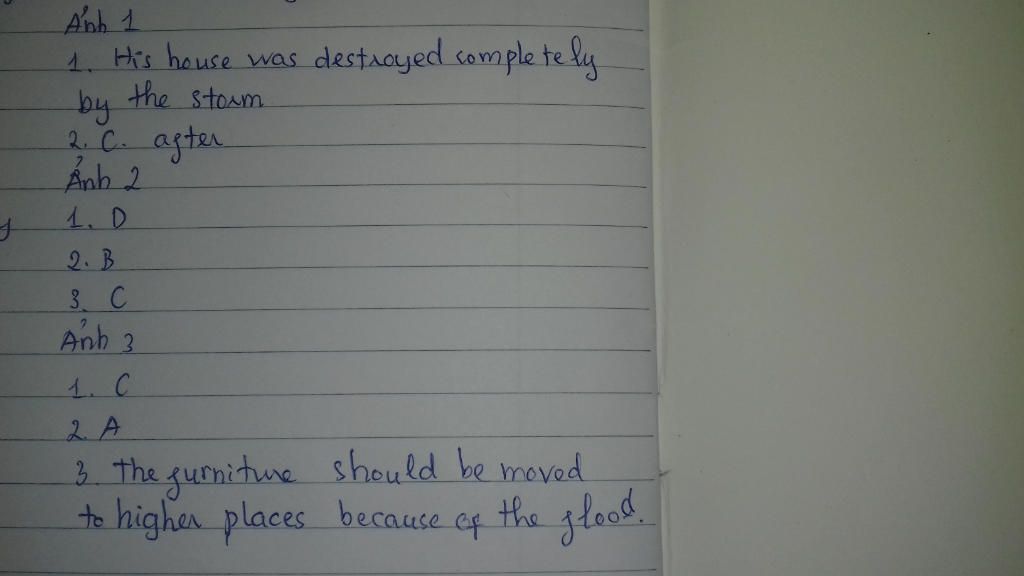 Ảnh 1
1. His house was destroyed completely
by the storm
2. C. after
Ảnh 2
1. D
2. B
3. C
Ảnh 3
1. C
2. A
3. the furniture should be moved
to higher places because of the flood.